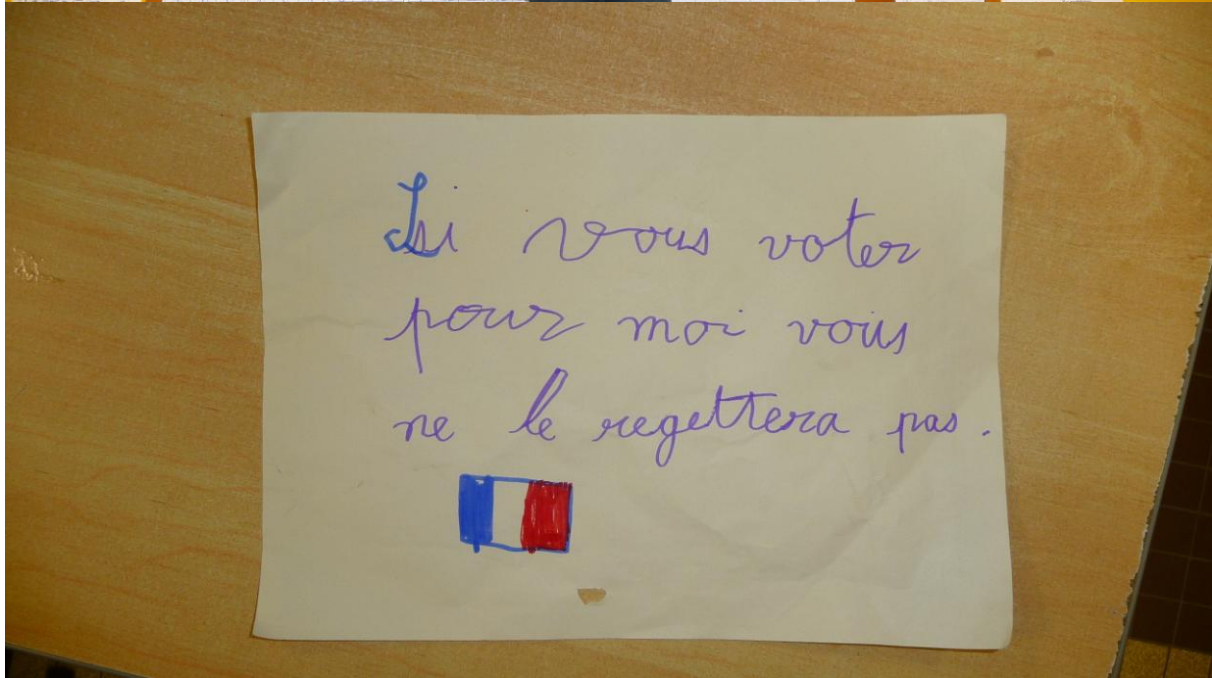 Si vous voter
pour moi vous
ne le regettera pas.